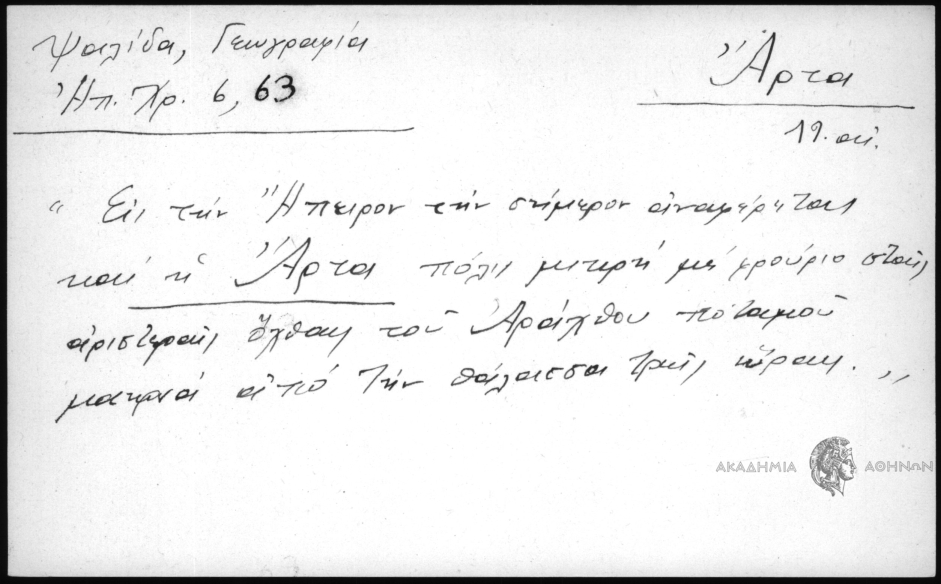 Ψαλίδα, Γεωγραφία
Ἠπ. Χρ. 6, 63
Ἄρτα
19. αἰ.
“ Εἰς τὴν Ἤπειρον τὴν σήμερον ἀναφέρεται
καὶ ἡ Ἄρτα πόλις μικρὴ μὲ φρούριο σταῖς
ἀριστεραῖς ὄχθαις τοῦ Ἀράχθου ποταμοῦ
μακριὰ ἀπὸ τὴν θάλασσα τρεῖς ὥραις. „
ΑΚΑΔΗΜΙΑ ΑΘΗΝΩΝ